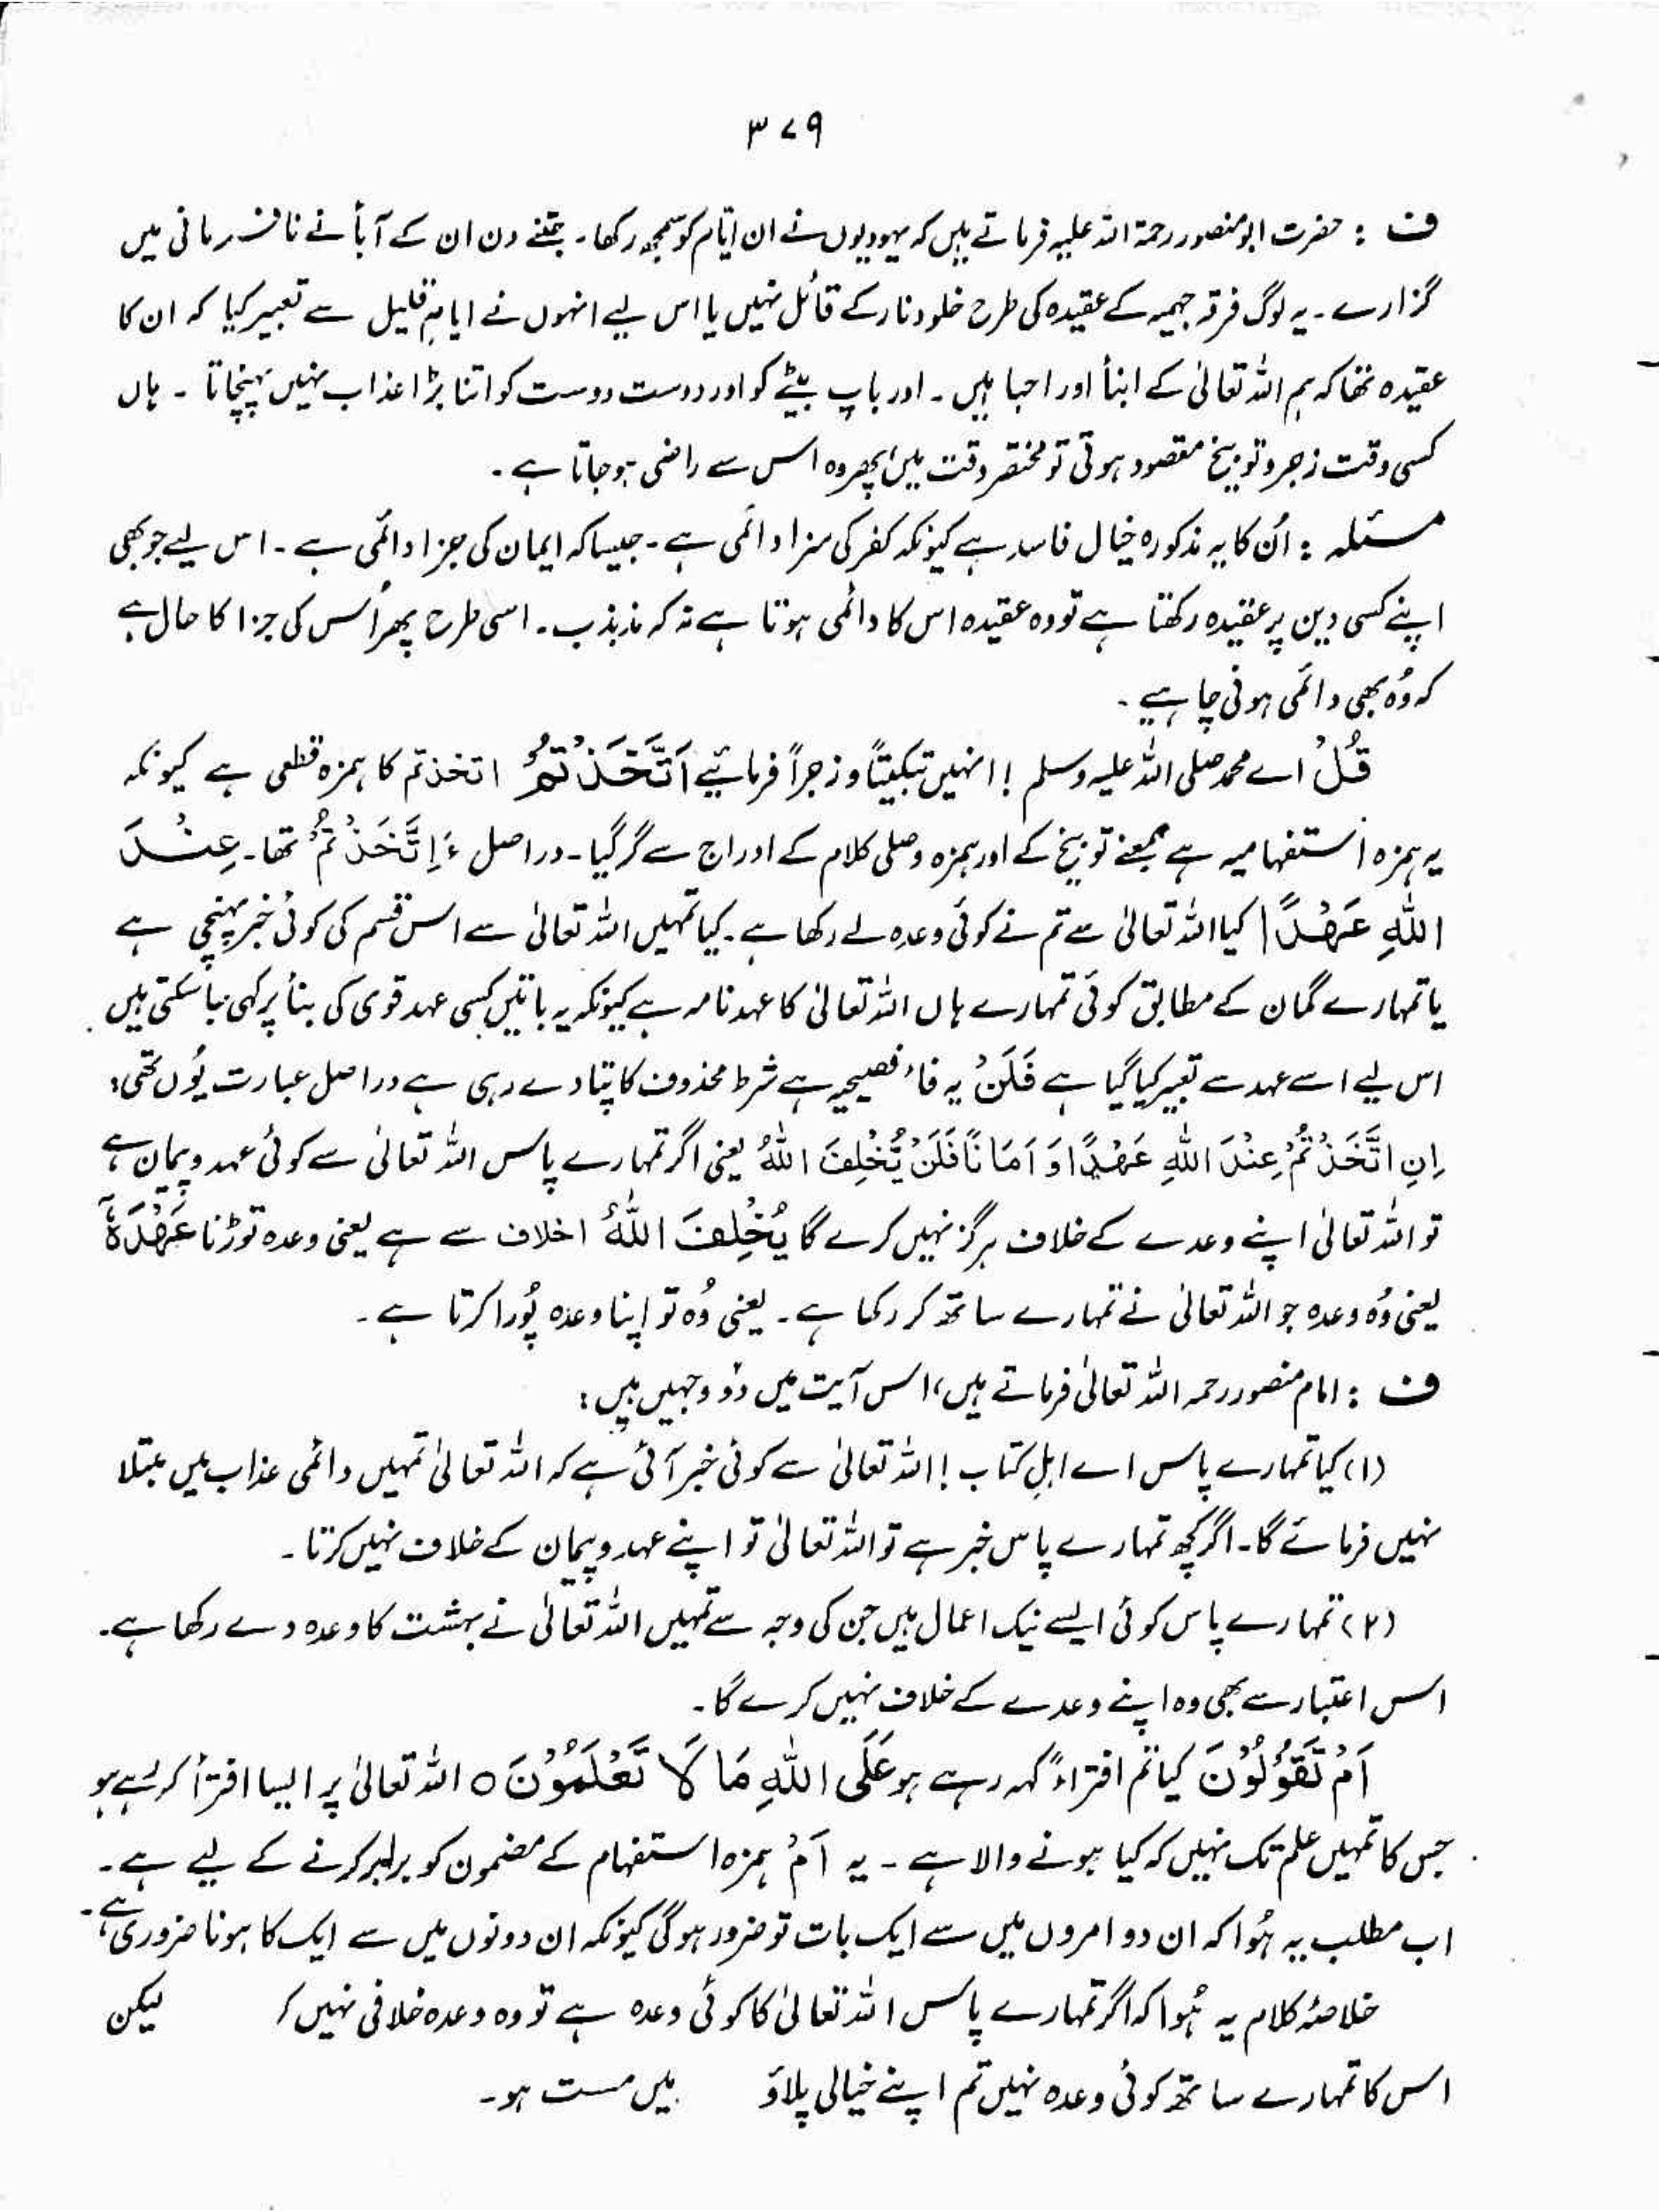 ۳۷۹
ف : حضرت ابومنصور رحمۃ اللہ علیہ فرماتے ہیں کہ یہودیوں نے ان ایّام کو سمجھ رکھا۔ جتنے دن ان کے آبأ نے نافرمانی میں
گزارے۔ یہ لوگ فرقہ جہمیہ کے عقیدہ کی طرح خلودِ نار کے قائل نہیں یا اس لیے انہوں نے ایامِ قلیل سے تعبیر کیا کہ ان کا
عقیدہ تھا کہ ہم اللہ تعالیٰ کے ابنأ اور احبا ہیں۔ اور باپ بیٹے کو اور دوست دوست کو اتنا بڑا عذاب نہیں پہنچاتا ۔ ہاں
کسی وقت زجر و توبیخ مقصود ہوتی تو مختصر وقت میں، پھر وہ اس سے راضی ہو جاتا ہے۔
مسئلہ : اُن کا یہ مذکورہ خیال فاسد ہے کیونکہ کفر کی سزا دائمی ہے۔ جیسا کہ ایمان کی جزا دائمی ہے۔ اس لیے جو بھی
اپنے کسی دین پر عقیدہ رکھتا ہے تو وہ عقیدہ اس کا دائمی ہوتا ہے نہ کہ مذبذب۔ اسی طرح پھر اُس کی جزا کا حال ہے
کہ وُہ بھی دائمی ہونی چاہیے۔
قُلْ اے محمد صلی اللہ علیہ وسلم ! انہیں تبکیتاً و زجراً فرمائیے اَتَّخَذْتُمْ اتخذتم کا ہمزہ قطعی ہے کیونکہ
یہ ہمزہ استفہامیہ ہے بمعنے توبیخ کے اور ہمزہ وصلی کلام کے ادراج سے گر گیا۔ دراصل ءَاِتَّخَذْتُمْ تھا۔ عِنْدَ
اللّٰہِ عَہْدًا کیا اللہ تعالیٰ سے تم نے کوئی وعدہ لے رکھا ہے۔ کیا تمہیں اللہ تعالیٰ سے اس قسم کی کوئی خبر پہنچی ہے
یا تمہارے گمان کے مطابق کوئی تمہارے ہاں اللہ تعالیٰ کا عہدنامہ ہے کیونکہ یہ باتیں کسی عہد قوی کی بنأ پر کہی جا سکتی ہیں۔
اس لیے اسے عہد سے تعبیر کیا گیا ہے فَلَنْ یہ فاء فصیحیہ ہے شرط محذوف کا پتا دے رہی ہے دراصل عبارت یُوں تھی:
اِنِ اتَّخَذْتُمْ عِنْدَ اللّٰہِ عَہْدًا اَوْ اَمَانًا فَلَنْ یُّخْلِفَ اللّٰہُ یعنی اگر تمہارے پاس اللہ تعالیٰ سے کوئی عہد و پیمان ہے
تو اللہ تعالیٰ اپنے وعدے کے خلاف ہرگز نہیں کرے گا یُخْلِفَ اللّٰہُ اخلاف سے ہے یعنی وعدہ توڑنا عَہْدَہٗ
یعنی وُہ وعدہ جو اللہ تعالیٰ نے تمہارے ساتھ کر رکھا ہے۔ یعنی وُہ تو اپنا وعدہ پُورا کرتا ہے۔
ف : امام منصور رحمہ اللہ تعالیٰ فرماتے ہیں، اس آیت میں دو وجہیں ہیں:
(۱) کیا تمہارے پاس اے اہلِ کتاب ! اللہ تعالیٰ سے کوئی خبر آئی ہے کہ اللہ تعالیٰ تمہیں دائمی عذاب میں مبتلا
نہیں فرمائے گا۔ اگر کچھ تمہارے پاس خبر ہے تو اللہ تعالیٰ تو اپنے عہد و پیمان کے خلاف نہیں کرتا۔
(۲) تمہارے پاس کوئی ایسے نیک اعمال ہیں جن کی وجہ سے تمہیں اللہ تعالیٰ نے بہشت کا وعدہ دے رکھا ہے۔
اس اعتبار سے بھی وہ اپنے وعدے کے خلاف نہیں کرے گا۔
اَمْ تَقُوْلُوْنَ کیا تم افتراءً کہہ رہے ہو عَلَی اللّٰہِ مَا لَا تَعْلَمُوْنَ ○ اللہ تعالیٰ پر ایسا افترأ کر رہے ہو
جس کا تمہیں علم تک نہیں کہ کیا ہونے والا ہے۔ یہ اَمْ ہمزہ استفہام کے مضمون کو برابر کرنے کے لیے ہے۔
اب مطلب یہ ہُوا کہ ان دو امروں میں سے ایک بات تو ضرور ہوگی کیونکہ ان دونوں میں سے ایک کا ہونا ضروری ہے۔
خلاصۂ کلام یہ ہُوا کہ اگر تمہارے پاس اللہ تعالیٰ کا کوئی وعدہ ہے تو وہ وعدہ خلافی نہیں لیکن
اس کا تمہارے ساتھ کوئی وعدہ نہیں تم اپنے خیالی پلاؤ میں مست ہو۔